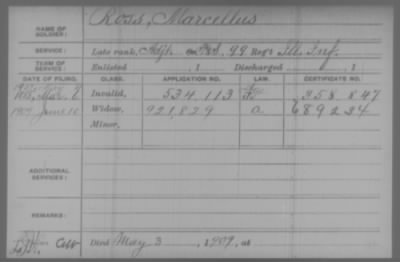 Ross, Marcellus
NAME OF SOLDIER:
SERVICE: Late rank, F&S, 99 Reg't Ill. Inf.
TERM OF SERVICE: Enlisted , 1 Discharged , 1
DATE OF FILING. CLASS. APPLICATION NO. LAW. CERTIFICATE NO.
Invalid, 534,113 358 847
1909 June 10 Widow, 921,829 a 689234
Minor,
ADDITIONAL SERVICES:
REMARKS:
Died May 3, 1909, at